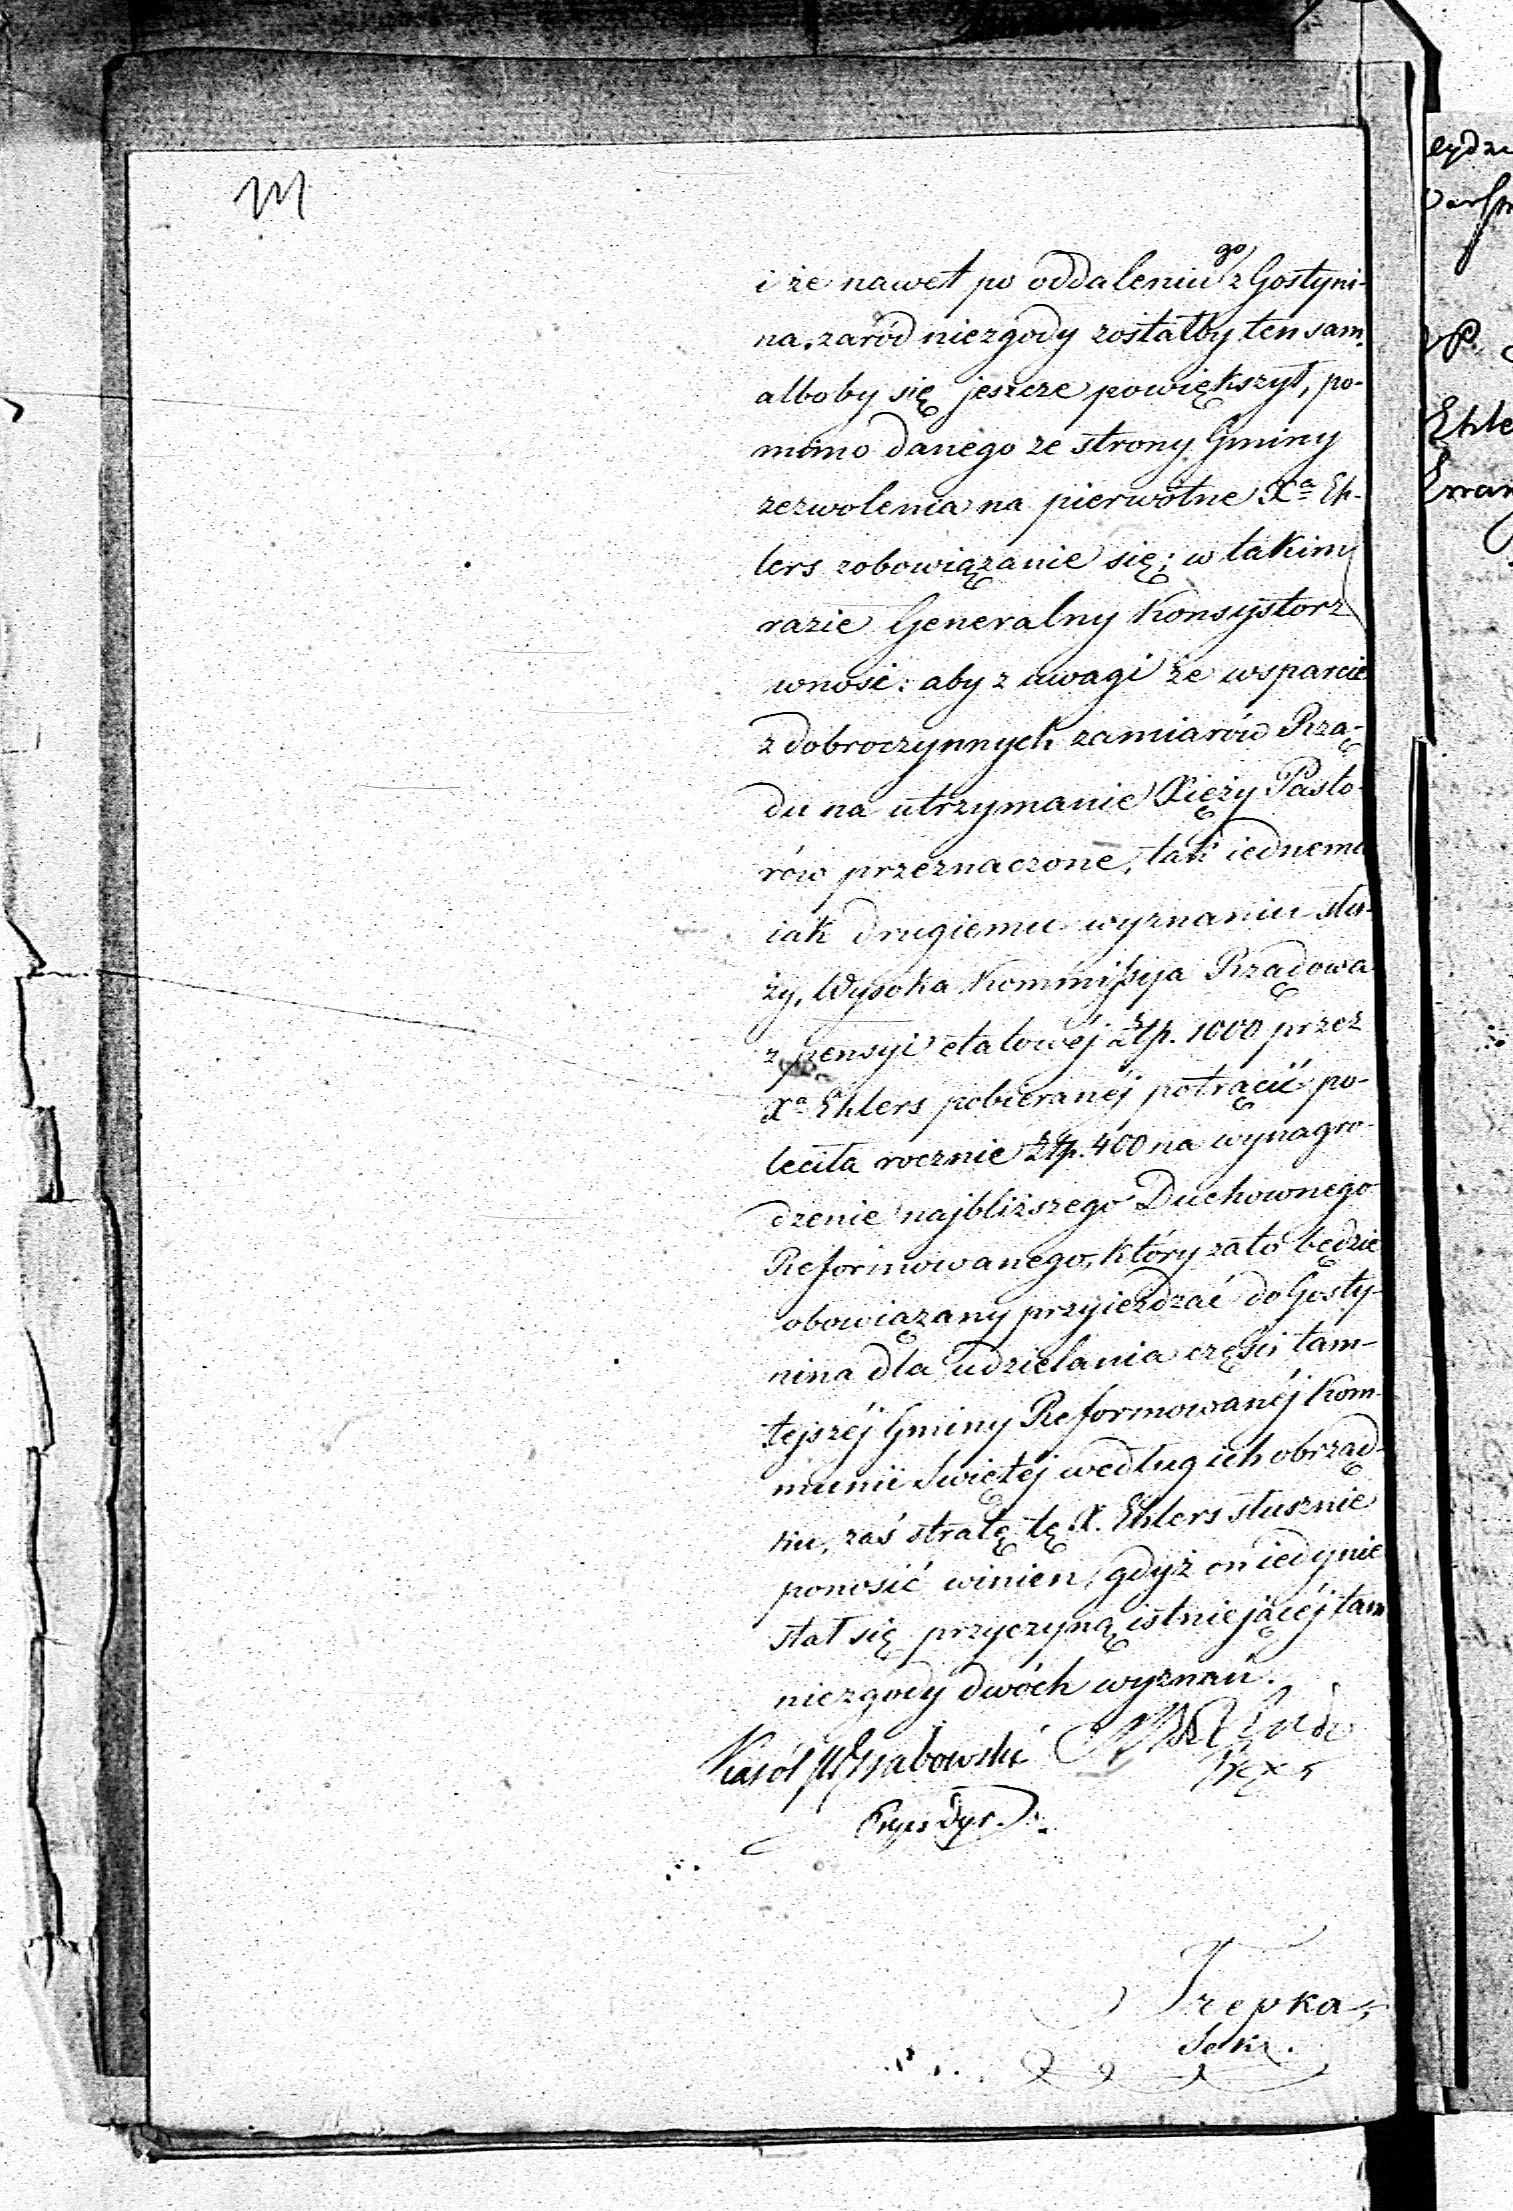 i że nawet po oddaleniu go z Gostyni-
na, zaród niezgody zostałby ten sam,
alboby się jeszcze powiększył, po-
mimo danego ze strony Gminy
zezwolenia na pierwotne Xa Eh-
lers zobowiązanie się; w takim
razie Generalny Konsystorz
wnosi: aby z uwagi że wsparcie
z dobroczynnych zamiarów Rzą-
du na utrzymanie Xięży Pasto-
rów przeznaczone, tak iednemu
iak drugiemu wyznaniu słu-
ży, Wysoka Kommissya Rządowa
z pensyi etatowéj Złp. 1000 przez
Xa Ehlers pobieranéj potrącić po-
leciła rocznie Złp. 400 na wynagro-
dzenie najbliższego Duchownego
Reformowanego, który zato będzie
obowiązany przyieżdzać do Gosty-
nina dla udzielania części tam-
tejszéj Gminy Reformowanéj Kom-
munii Swiętej według ich obrząd-
ku, zaś stratę tę X. Ehlers słusznie
ponosić winien, gdyż on iedynie
stał się przyczyną istniejącéj tam
niezgody dwóch wyznań.
Karól Grabowski
Prezes Dyr.
Trepka,
Sekr.
eydz
P.
Ehle
Ewan